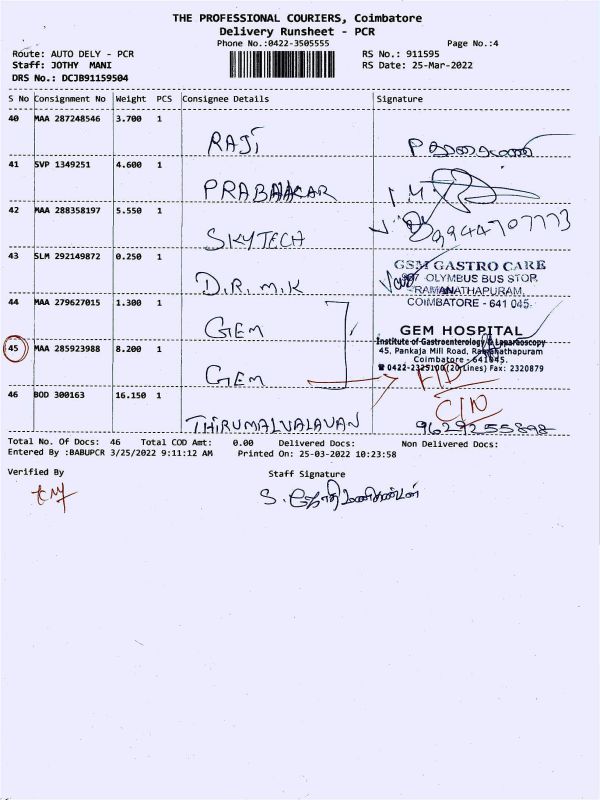 THE PROFESSIONAL COURIERS, Coimbatore
Delivery Runsheet - PCR
Phone No.:0422-3505555 Page No.:4
Route: AUTO DELY - PCR RS No.: 911595
Staff: JOTHY MANI RS Date: 25-Mar-2022
DRS No.: DCJB91159504
S No Consignment No Weight PCS Consignee Details Signature
40 MAA 287248546 3.700 1
RAJI
41 SVP 1349251 4.600 1
PRABHAKAR
42 MAA 288358197 5.550 1
SKYTECH 9944707773
43 SLM 292149872 0.250 1
GSM GASTRO CARE
OLYMBUS BUS STOP,
RAMANATHAPURAM,
D.R.M.K
COIMBATORE - 641 045.
44 MAA 279627015 1.300 1
GEM
GEM HOSPITAL
Institute of Gastroenterology & Laparoscopy
45 MAA 285923988 8.200 1
45, Pankaja Mill Road, Ramanathapuram
Coimbatore - 641045.
☎ 0422-2325100(20 Lines) Fax: 2320879
GEM
46 BOD 300163 16.150 1
THIRUMALVALAVAN 9629255898
Total No. Of Docs: 46 Total COD Amt: 0.00 Delivered Docs: Non Delivered Docs:
Entered By :BABUPCR 3/25/2022 9:11:12 AM Printed On: 25-03-2022 10:23:58
Verified By Staff Signature